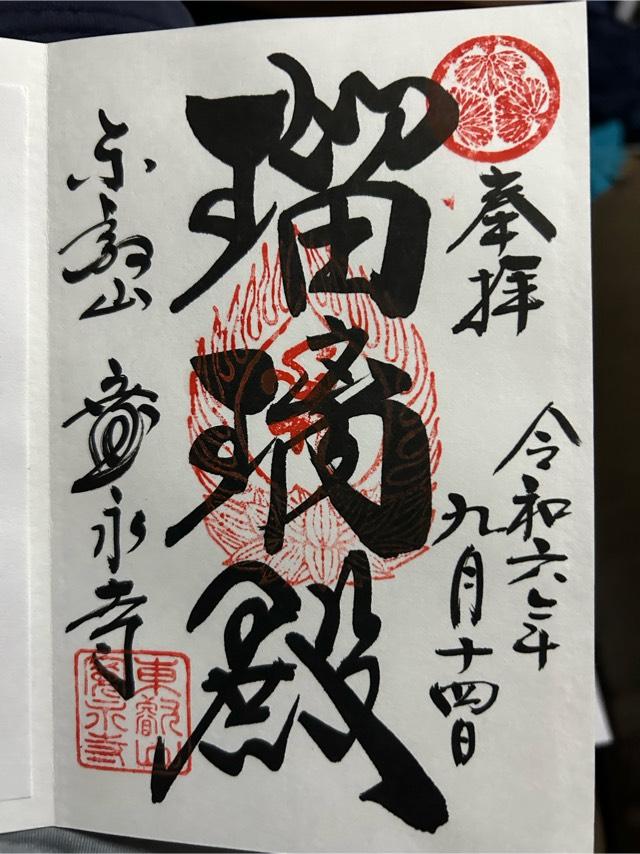 奉拝
令和六年
九月十四日
瑠璃殿
東叡山 寛永寺
東叡山
寛永寺